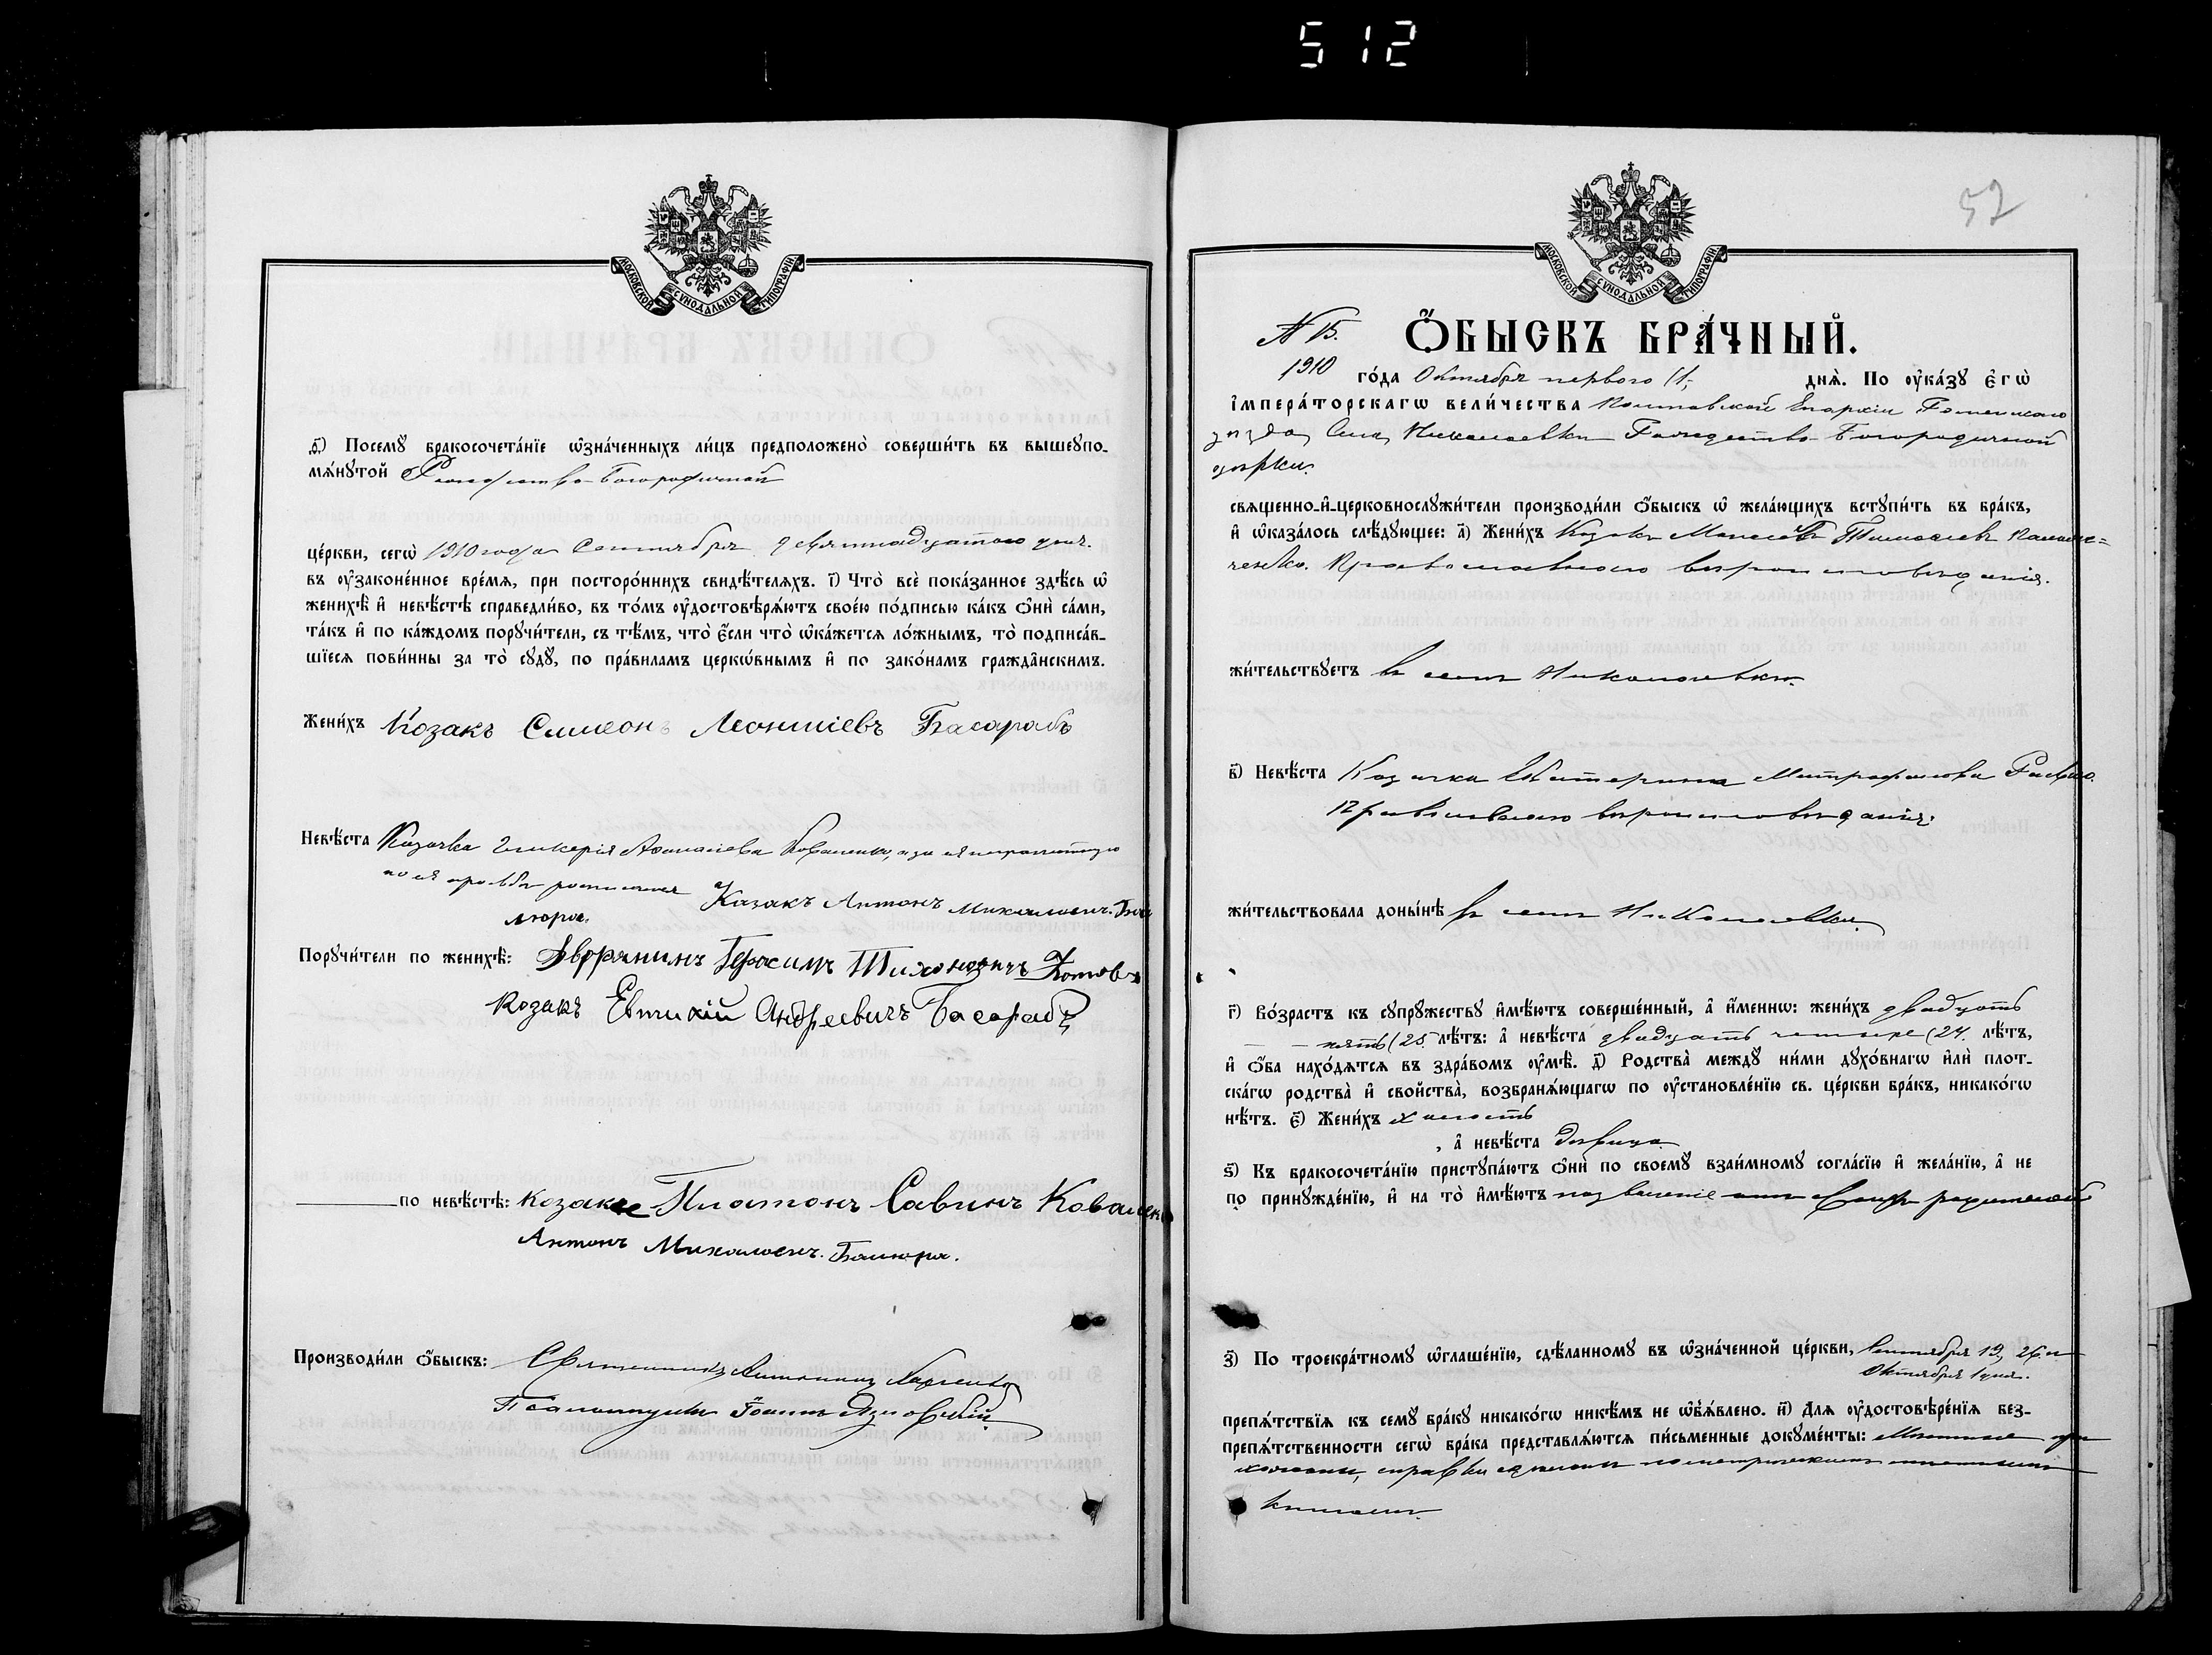 512
МОСКОВСКОЙ СѴНОДАЛЬНОЙ ТИПОГРАФІИ
ѳ҃) Посемꙋ̀ бракосочета́нїе ѡзна́ченныхъ ли́цъ предположено̀ соверши́ть въ вышеꙋпо-
мѧ́нꙋтой Рождество-Богородичной
це́ркви, сегѡ̀ 1910 года Сентября девятнадцатого дня.
въ ᲂу҆законе́нное вре́мѧ, при посторо́ннихъ свидѣ́телѧхъ. і҃) Что̀ всѐ пока́занное здѣ́сь ѡ
женихѣ̀ и҆ невѣ́стѣ справедли́во, въ то́мъ ᲂу҆достовѣрѧ́ютъ свое́ю по́дписью ка́къ ѻ҆нѝ са́ми,
та́къ и҆ по ка́ждомъ порꙋчи́тели, съ тѣ́мъ, что̀ є҆́сли что̀ ѡ҆ка́жетсѧ ло́жнымъ, то̀ подписа́в-
шїесѧ пови́нны за то̀ сꙋдꙋ̀, по пра́виламъ церкѡ́внымъ и҆ по зако́намъ гражда̂нскимъ.
Жени́хъ Козакъ Симеонъ Леонтіевъ Басарабъ
Невѣ́ста Казачка Гликерія Аѳанасіева Коваленко, а за ея неграмотную
по ея просьбѣ росписался Казакъ Антонъ Михайловичъ
Порꙋчи́тели по женихѣ̀: Дворянинъ Герасимъ Тихоновичъ
Козакъ Евтихій Андреевичъ Басарабъ
по невѣ́стѣ: Козаки Платонъ Савинъ
Антонъ Михайловичъ
Производи́ли ѻ҆́быскъ: Священникъ
Псаломщикъ Іоаннъ
52
МОСКОВСКОЙ СѴНОДАЛЬНОЙ ТИПОГРАФІИ
N 15. Ѻ҆́БЫСКЪ БРА́ЧНЫЙ.
1910 го́да Октября первого (1. днѧ̀. По ᲂу҆ка́зꙋ є҆гѡ̀
і҆мпера́торскагѡ вели́чества Полтавской Епархіи Роменского
уѣзда, Села Николаевки Рождество-Богородичной
церкви.
свѧщенно-и҆-церковнослꙋжи́тели производи́ли ѻ҆́быскъ ѡ жела́ющихъ встꙋпи́ть въ бра́къ,
и҆ ѡ҆каза́лось слѣ́дꙋющее: а҃) Жени́хъ Козакъ Моисей
Православного вѣроисповѣданія.
жи́тельствꙋетъ въ селѣ Николаевкѣ.
в҃) Невѣ́ста Козачка Екатерина Митрофанова
Православного вѣроисповѣданія.
жи́тельствовала доны́нѣ въ селѣ Николаевкѣ.
г҃) Во́зрастъ къ сꙋпрꙋ́жествꙋ и҆мѣ́ютъ соверше́нный, а҆ и҆́меннѡ: жени́хъ двадцать
пять (25. лѣ́тъ: а҆ невѣ́ста двадцать четыре (24. лѣ́тъ,
и҆ ѻ҆́ба нахо́дѧтсѧ въ здра́вомъ ᲂу҆мѣ̀. д҃) Родства̀ междꙋ̀ ни́ми дꙋхо́внагѡ и҆лѝ плот-
ска́гѡ родства̀ и҆ сво́йства̀, возбранѧ́ющагѡ по ᲂу҆становле́нїю св. це́ркви бра́къ, никако́гѡ
нѣ́тъ. є҃) Жени́хъ холостъ
, а҆ невѣ́ста девица
ѕ҃) Къ бракосочета́нїю пристꙋпа́ютъ ѻ҆нѝ по своемꙋ̀ взаи́мномꙋ согла́сїю и҆ жела́нїю, а҆ не
по принꙋжде́нїю, и҆ на то̀ и҆мѣ́ютъ позволеніе отъ своихъ родителей
з҃) По троекра́тномꙋ ѡ҆глаше́нїю, сдѣ́ланномꙋ въ ѡ҆зна́ченной це́ркви, Сентября 19, 26 и
Октября 1 дня.
препѧ́тствїѧ къ семꙋ̀ бра́кꙋ никако́гѡ никѣ́мъ не ѡ҆б̾ѧ́влено. и҃) Длѧ ᲂу҆достовѣре́нїѧ без-
препѧ́тственности сегѡ̀ бра́ка представлѧ́ютсѧ пи́сьменные докꙋме́нты: Местные при
хожаны, справки сделаны по метрическимъ
книгамъ.